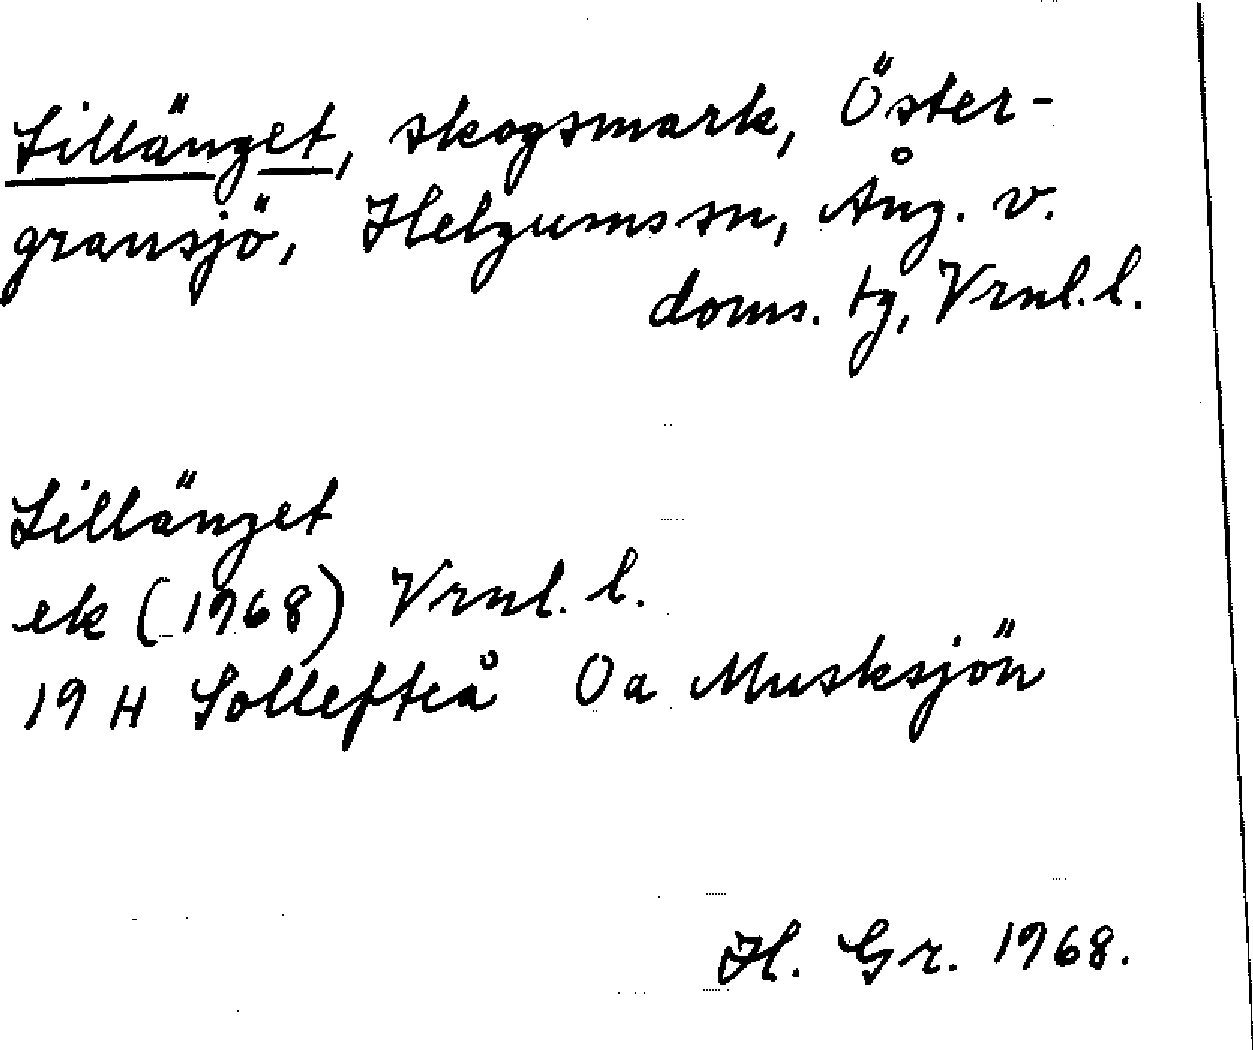 Lillänget, skogsmark, Öster-
gransjö, Helgums sn, Ång. v.
doms. tg, Vrnl. l.
Lillänget
ek (1968) Vrnl. l.
19 H Sollefteå Oa Musksjön
H. Gr. 1968.